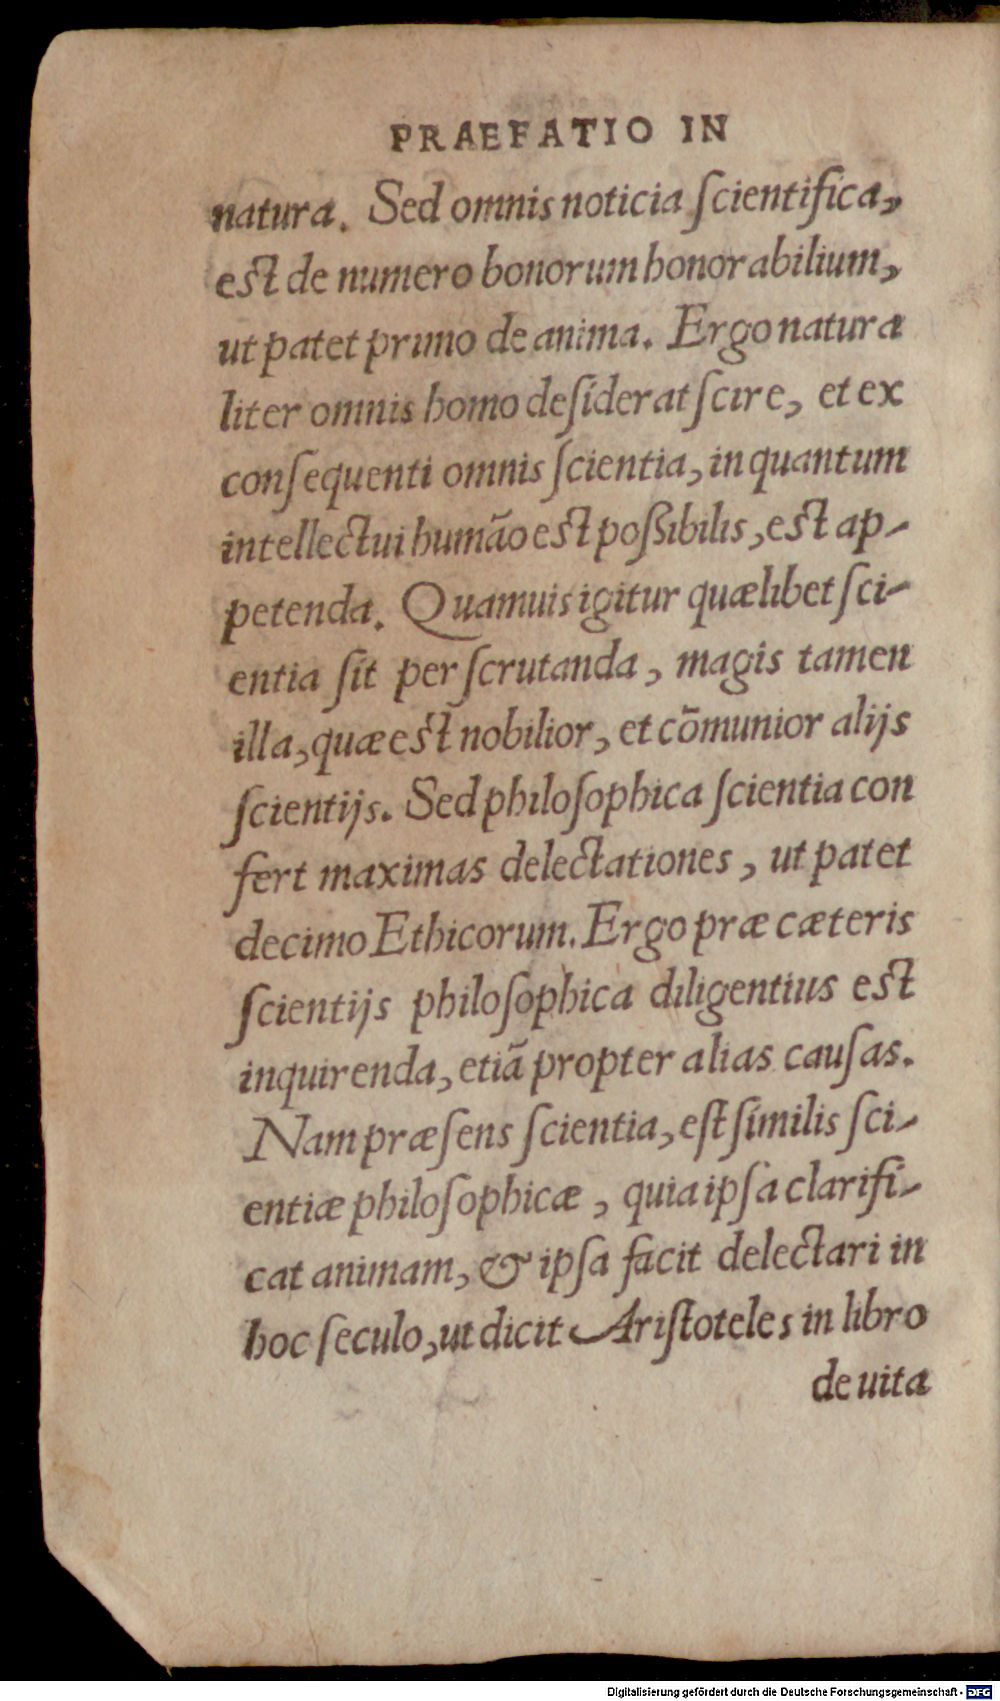 PRAEFATIO IN
natura. Sed omnis noticia ſcientifica,
eſt de numero bonorum honorabilium,
ut patet primo de anima. Ergo natura
liter omnis homo deſiderat ſcire, et ex
conſequenti omnis ſcientia, in quantum
intellectui humão eſt poſsibilis, eſt ap-
petenda. Quamuis igitur quælibet ſci-
entia ſit per ſcrutanda, magis tamen
illa, quæ eſt nobilior, et cōmunior alijs
ſcientijs. Sed philoſophica ſcientia con
fert maximas delectationes, ut patet
decimo Ethicorum. Ergo præ cæteris
ſcientijs philoſophica diligentius eſt
inquirenda, etiã propter alias cauſas.
Nam præſens ſcientia, eſt ſimilis ſci-
entiæ philoſophicæ, quia ipſa clarifi-
cat animam, & ipſa facit delectari in
hoc ſeculo, ut dicit Ariſtoteles in libro
de uita
Digitalisierung gefördert durch die Deutsche Forschungsgemeinschaft - DFG